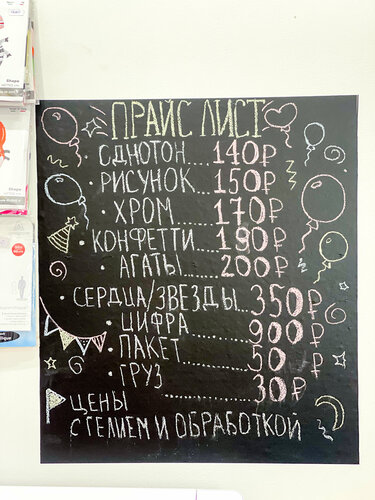 ПРАЙС ЛИСТ
· ОДНОТОН....140₽
· РИСУНОК....150₽
· ХРОМ.......170₽
· КОНФЕТТИ...190₽
· АГАТЫ......200₽
· СЕРДЦА/ЗВЕЗДЫ..350₽
· ЦИФРА......900₽
· ПАКЕТ......50₽
· ГРУЗ.......30₽
ЦЕНЫ
С ГЕЛИЕМ И ОБРАБОТКОЙ